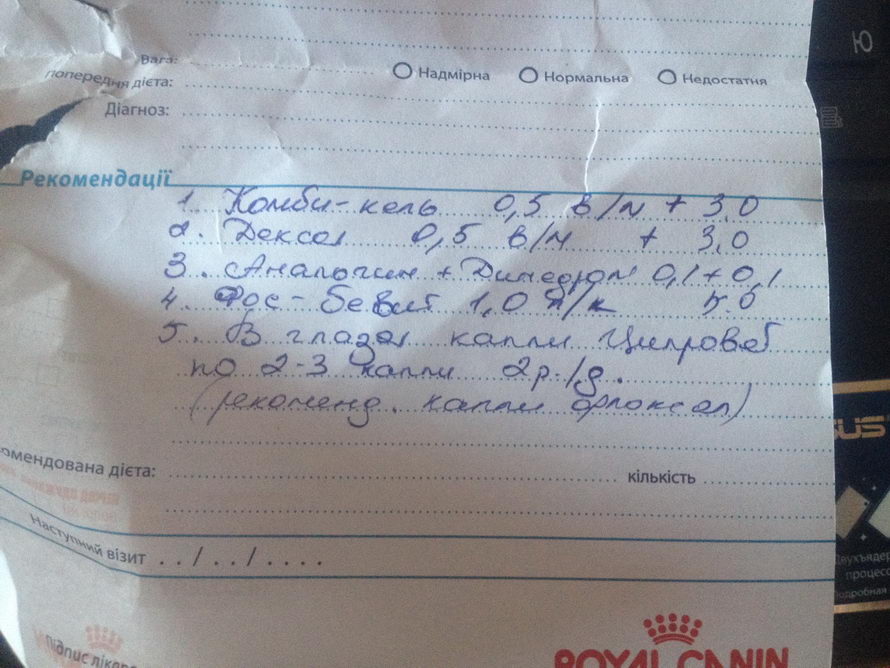 Ю
Вага:
попередня дієта:
Надмірна Нормальна Недостатня
Діагноз:
Рекомендації
1. Комби-кель 0,5 в/м + 3,0
2. Декса 0,5 в/м + 3,0
3. Анальгин + Димедрол 0,1 + 0,1
4. Фос-Бевит 1,0 п/к
5. В глаза капли Ципровет
по 2-3 капли 2р./д.
(рекоменд. капли офлоксал)
омендована дієта: кількість
Наступний візит . . / . . / . . . .
Підпис ліка
ROYAL CANIN
SUS
Двухъядер
процесс
Подробная